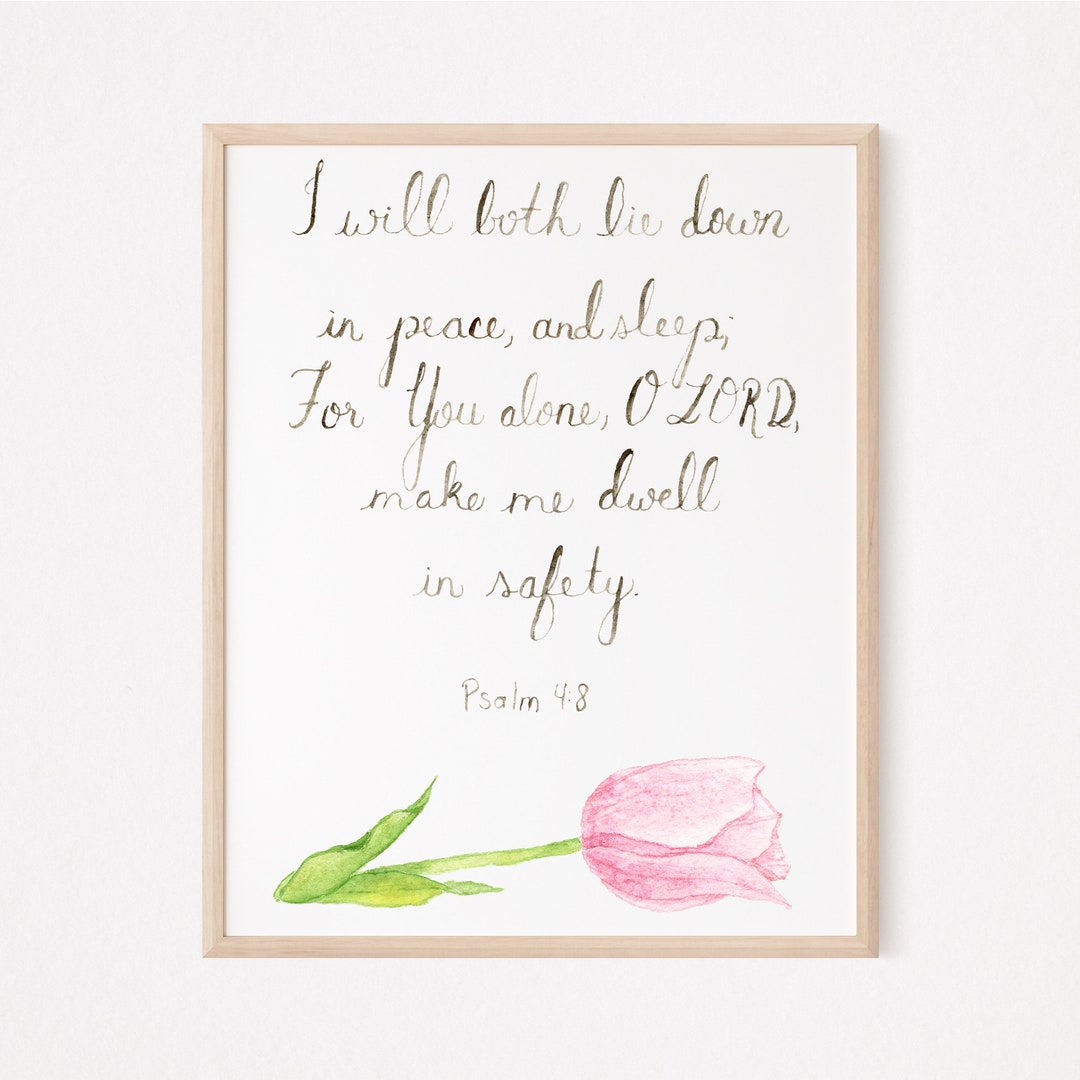 I will both lie down
in peace, and sleep;
For You alone, O LORD,
make me dwell
in safety.
Psalm 4:8